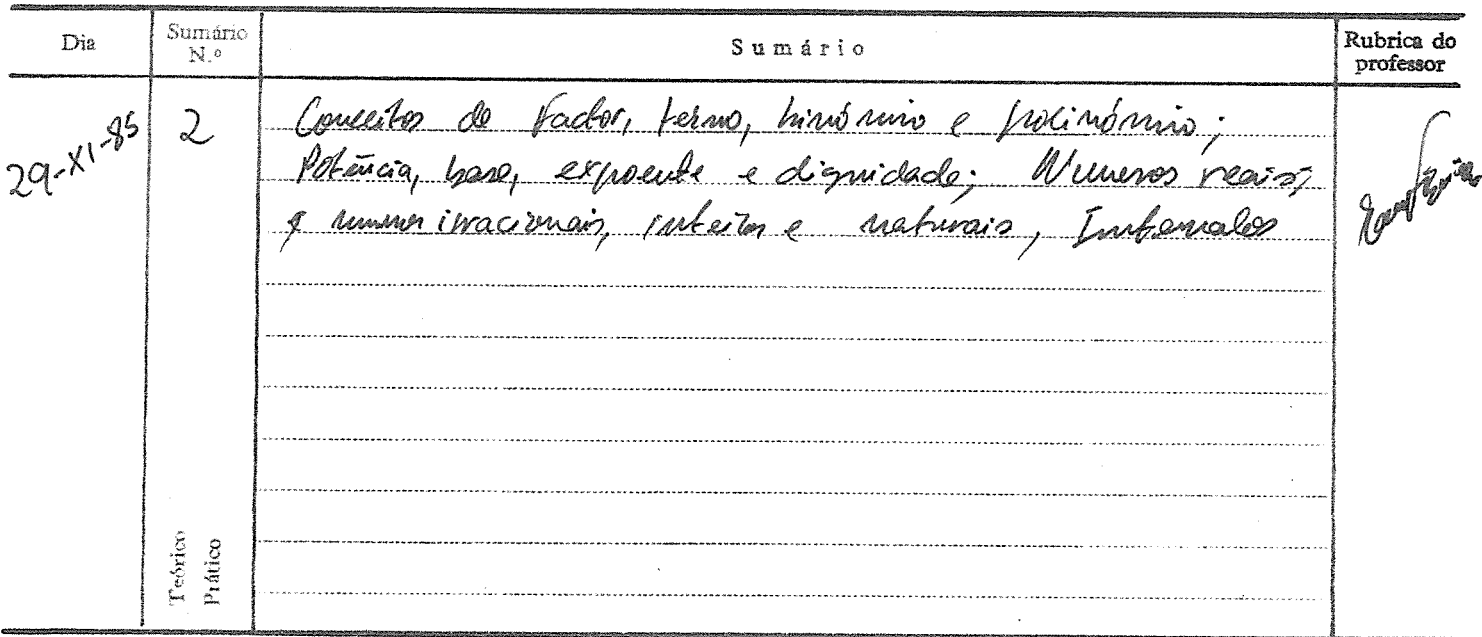 Dia
Sumário N.º
Sumário
Rubrica do professor
29-XI-85
2
Conceitos de Factor, termo, binómio e polinómio;
Potência, base, expoente e dignidade; Numeros reais,
e numeros irracionais, inteiros e naturais, Intervalos
Teórico
Prático